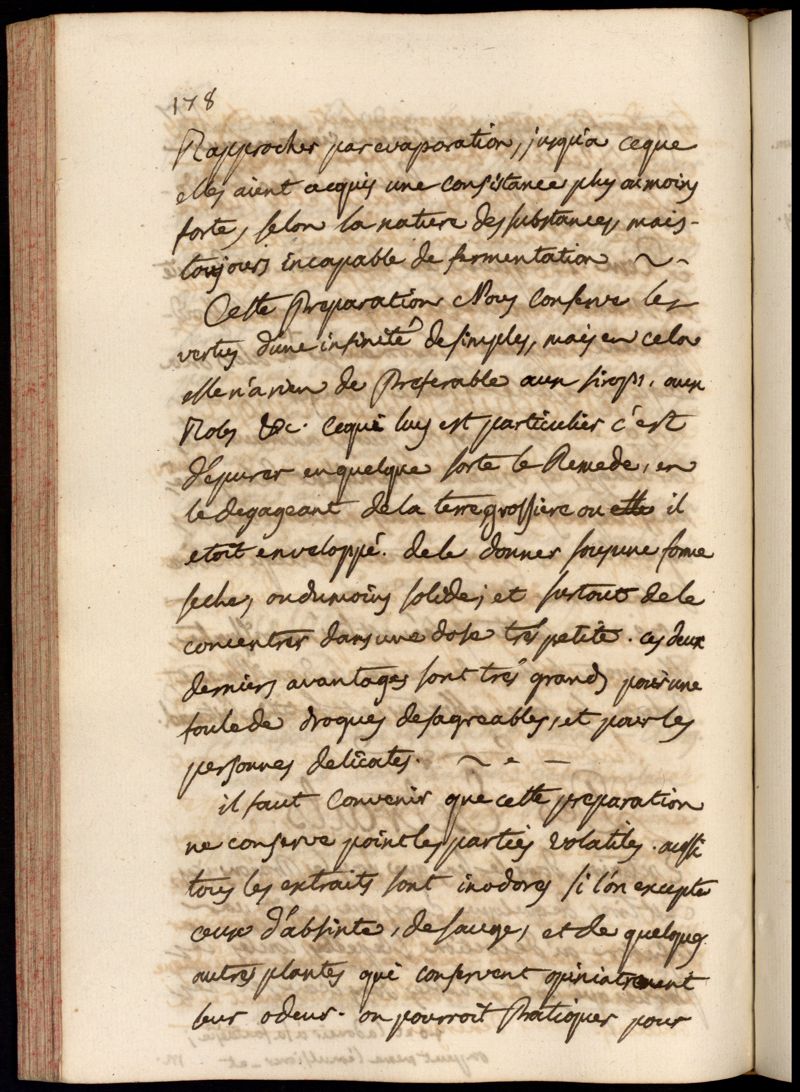 178
Rapprocher par evaporation, jusqu'a ceque
elles aient acquis une consistance plus ou moins
forte, selon la nature des substances, mais-
toujours incapable de fermentation ~ -
Cette Preparation Nous conserve les
vertus d'une infinité de simples, mais en cela
elle n'a rien de Preferable aux sirops, aux
Robs &c. ce qui luy est particulier c'est
d'epurer en quelque sorte le Remede, en
le degageant de la terre grossiere ou il
etoit enveloppé. de le donner sous une forme
seche, ou du moins solide; et surtout de le
concentrer dans une dose très petite. ces deux
derniers avantages sont très grands pour une
foule de drogues desagreables, et pour les
personnes delicates. ~ - -
il faut convenir que cette preparation
ne conserve point les parties volatiles. aussi
tous les extraits sont inodores si l'on excepte
ceux d'absinte, de sauge, et de quelques
autres plantes qui conservent opiniatrement
leur odeur. on pourroit Pratiquer pour